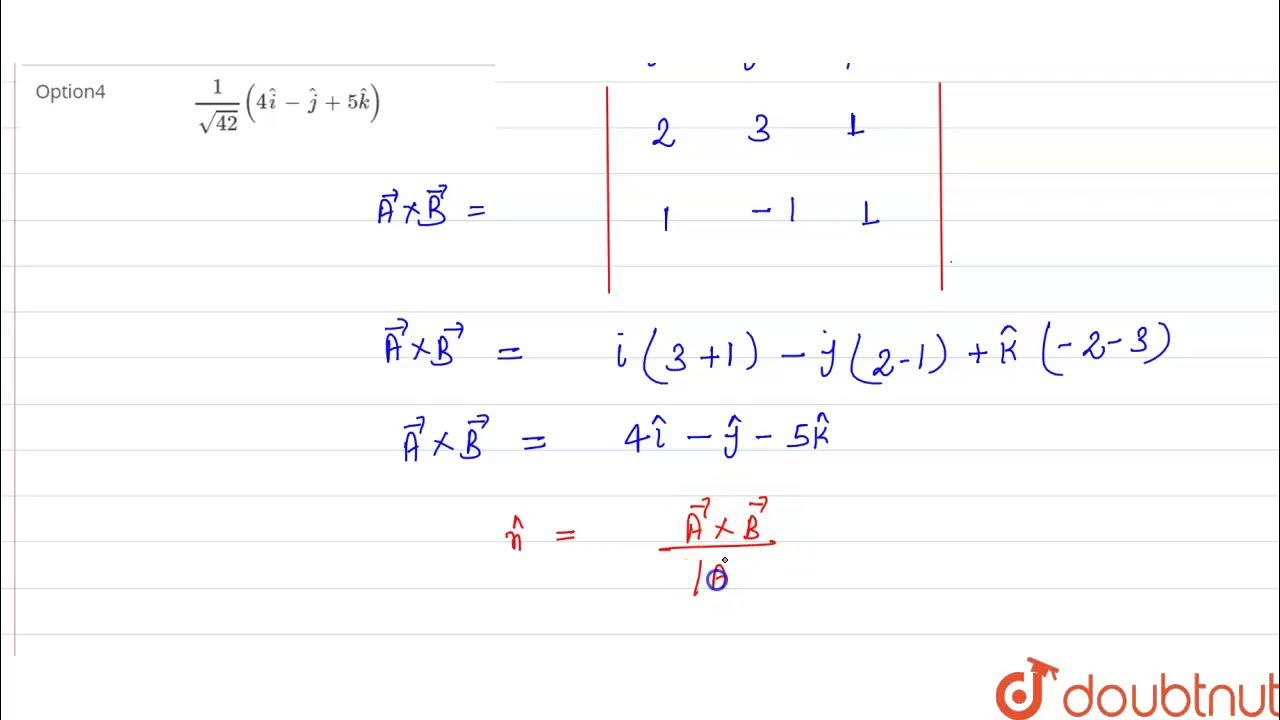 Option4 1/√42 (4î − ĵ + 5k̂)
2 3 1
A⃗ × B⃗ =
1 −1 1
A⃗ × B⃗ = i (3 + 1) − j (2 − 1) + k̂ (−2 − 3)
A⃗ × B⃗ = 4î − ĵ − 5k̂
n̂ = A⃗ × B⃗
|A
doubtnut